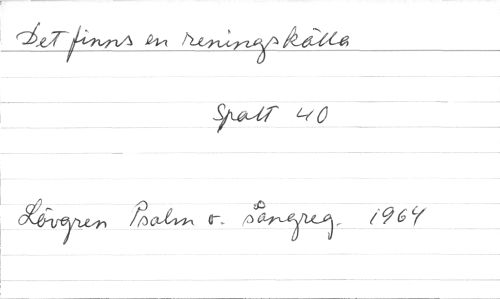 Det finns en reningskälla
Spalt 40
Lövgren Psalm o. sångreg. 1964